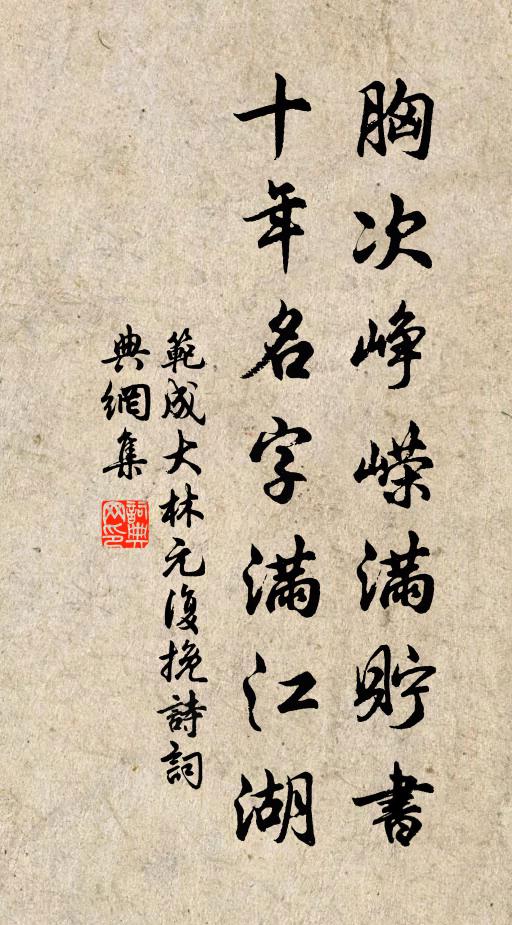 胸次峥嵘满贮書
十年名字满江湖
範成大林元復挽詩詞
典網集
詞典網印